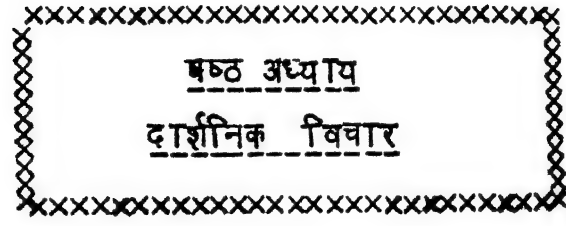 षष्ठ अध्याय
दार्शनिक विचार